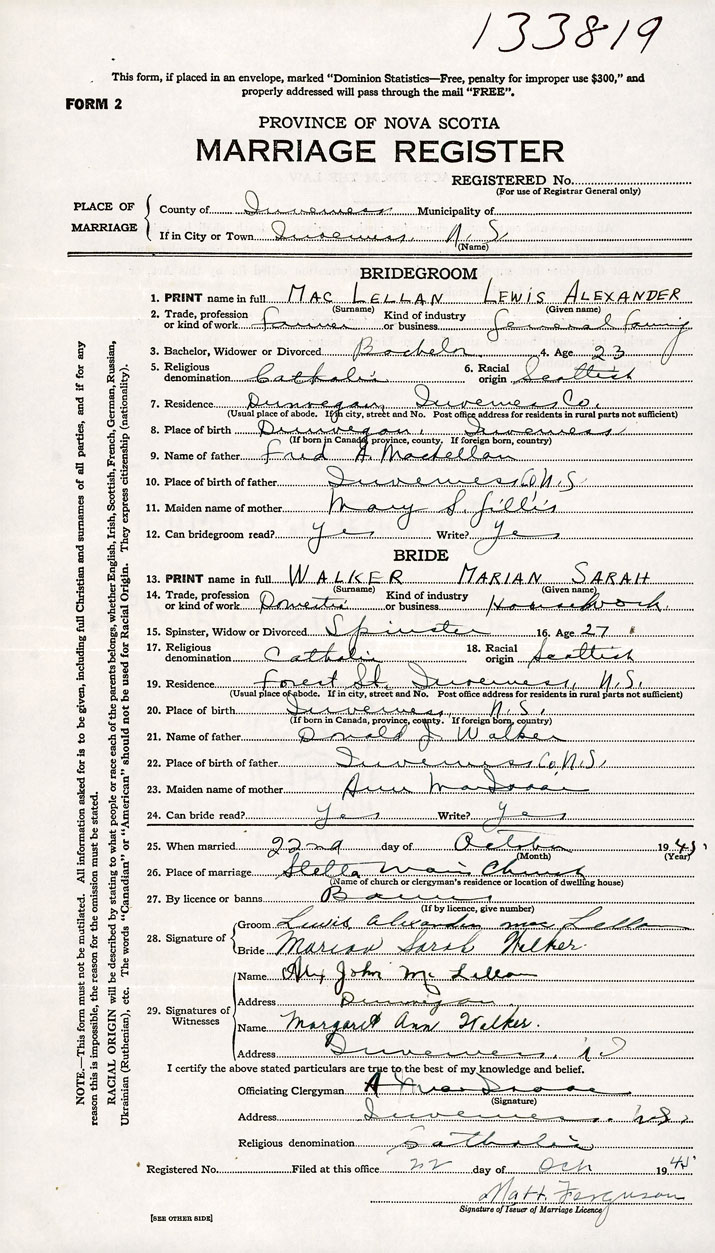 133819
This form, if placed in an envelope, marked "Dominion Statistics—Free, penalty for improper use $300," and
properly addressed will pass through the mail "FREE".
FORM 2
PROVINCE OF NOVA SCOTIA
MARRIAGE REGISTER
REGISTERED No.
(For use of Registrar General only)
PLACE OF MARRIAGE
County of Inverness Municipality of
If in City or Town Inverness, N.S.
(Name)
BRIDEGROOM
1. PRINT name in full MAC LELLAN LEWIS ALEXANDER
(Surname) (Given name)
2. Trade, profession or kind of work farmer Kind of industry or business General farming
3. Bachelor, Widower or Divorced Bachelor 4. Age 23
5. Religious denomination Catholic 6. Racial origin Scottish
7. Residence Dunvegan, Inverness Co.
(Usual place of abode. If in city, street and No. Post office address for residents in rural parts not sufficient)
8. Place of birth Dunvegan, Inverness
(If born in Canada, province, county. If foreign born, country)
9. Name of father Fred A. MacLellan
10. Place of birth of father Inverness Co. N.S.
11. Maiden name of mother Mary S. Gillis
12. Can bridegroom read? Yes Write? Yes
BRIDE
13. PRINT name in full WALKER MARIAN SARAH
(Surname) (Given name)
14. Trade, profession or kind of work Domestic Kind of industry or business Housework.
15. Spinster, Widow or Divorced Spinster 16. Age 27
17. Religious denomination Catholic 18. Racial origin Scottish
19. Residence Forest St. Inverness, N.S.
(Usual place of abode. If in city, street and No. Post office address for residents in rural parts not sufficient)
20. Place of birth Inverness, N.S.
(If born in Canada, province, county. If foreign born, country)
21. Name of father Donald J. Walker
22. Place of birth of father Inverness Co. N.S.
23. Maiden name of mother Ann MacIsaac
24. Can bride read? Yes Write? Yes
25. When married 22nd day of October 1945
(Month) (Year)
26. Place of marriage Stella Maris Church
(Name of church or clergyman's residence or location of dwelling house)
27. By licence or banns Banns
(If by licence, give number)
28. Signature of
Groom Lewis Alexander MacLellan
Bride Marian Sarah Walker
29. Signatures of Witnesses
Name Alex John McLellan
Address Dunvegan
Name Margaret Ann Walker.
Address Inverness
I certify the above stated particulars are true to the best of my knowledge and belief.
Officiating Clergyman MacIsaac
(Signature)
Address Inverness, N.S.
Religious denomination Catholic
Registered No. Filed at this office 22 day of Oct 1945
Matt. Ferguson
Signature of Issuer of Marriage Licence
[SEE OTHER SIDE]
NOTE.—This form must not be mutilated. All information asked for is to be given, including full Christian and surnames of all parties, and if for any
reason this is impossible, the reason for the omission must be stated.
RACIAL ORIGIN will be described by stating to what people or race each of the parents belongs, whether English, Irish, Scottish, French, German, Russian,
Ukrainian (Ruthenian), etc. The words "Canadian" or "American" should not be used for Racial Origin. They express citizenship (nationality).